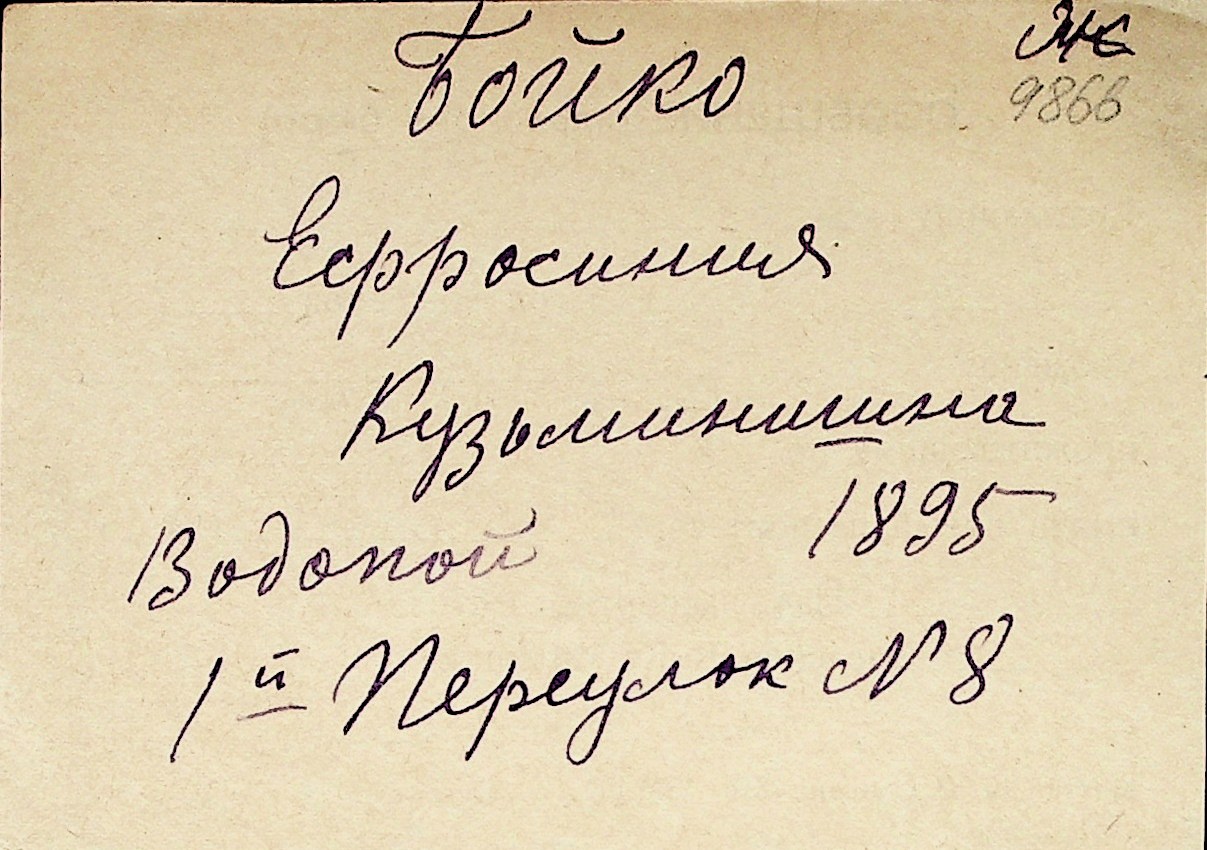 Бойко
9866
Ефросиния
Кузьминишна
Водопой 1895
1й Переулок N 8